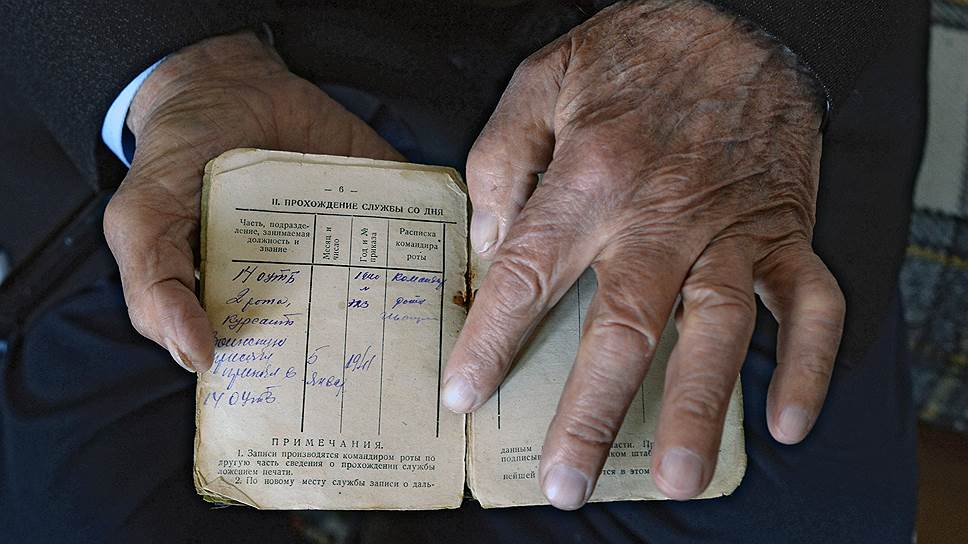 — 6 —
II. ПРОХОЖДЕНИЕ СЛУЖБЫ СО ДНЯ
Часть, подразде-
ление, занимаемая
должность и
звание
Месяц и
число
Год и №
приказа
Расписка
командира
роты
14 ОУТБ
2 рота,
курсант
Воинскую
присягу
принял в
14 ОУТБ
5
Январ
1940
1941
ПРИМЕЧАНИЯ.
1. Записи производятся командиром роты по
другую часть сведения о прохождении службы
ложением печати.
2. По новому месту службы записи о даль-
данным
части.
подписыв
ком штаб
нейшей
тся в этом